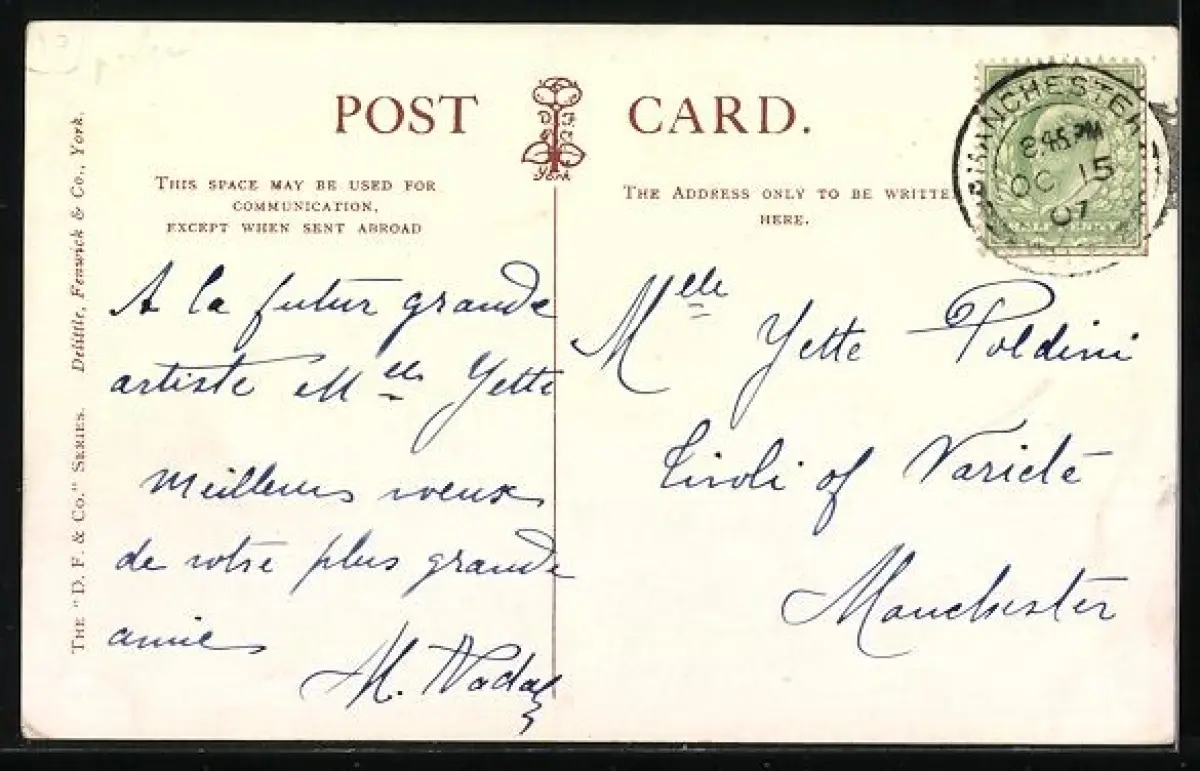 POST CARD.
D F
& Co
York
THIS SPACE MAY BE USED FOR
COMMUNICATION,
EXCEPT WHEN SENT ABROAD
THE ADDRESS ONLY TO BE WRITTE
HERE.
MANCHESTER
8.45 PM
OC 15
07
THE "D. F. & Co." SERIES. Delittle, Fenwick & Co., York.
A la futur grande
artiste Mlle Yette
meilleurs voeux
de votre plus grande
amie
M. Nadal
Mlle Yette Poldini
Tivoli of Varieté
Manchester